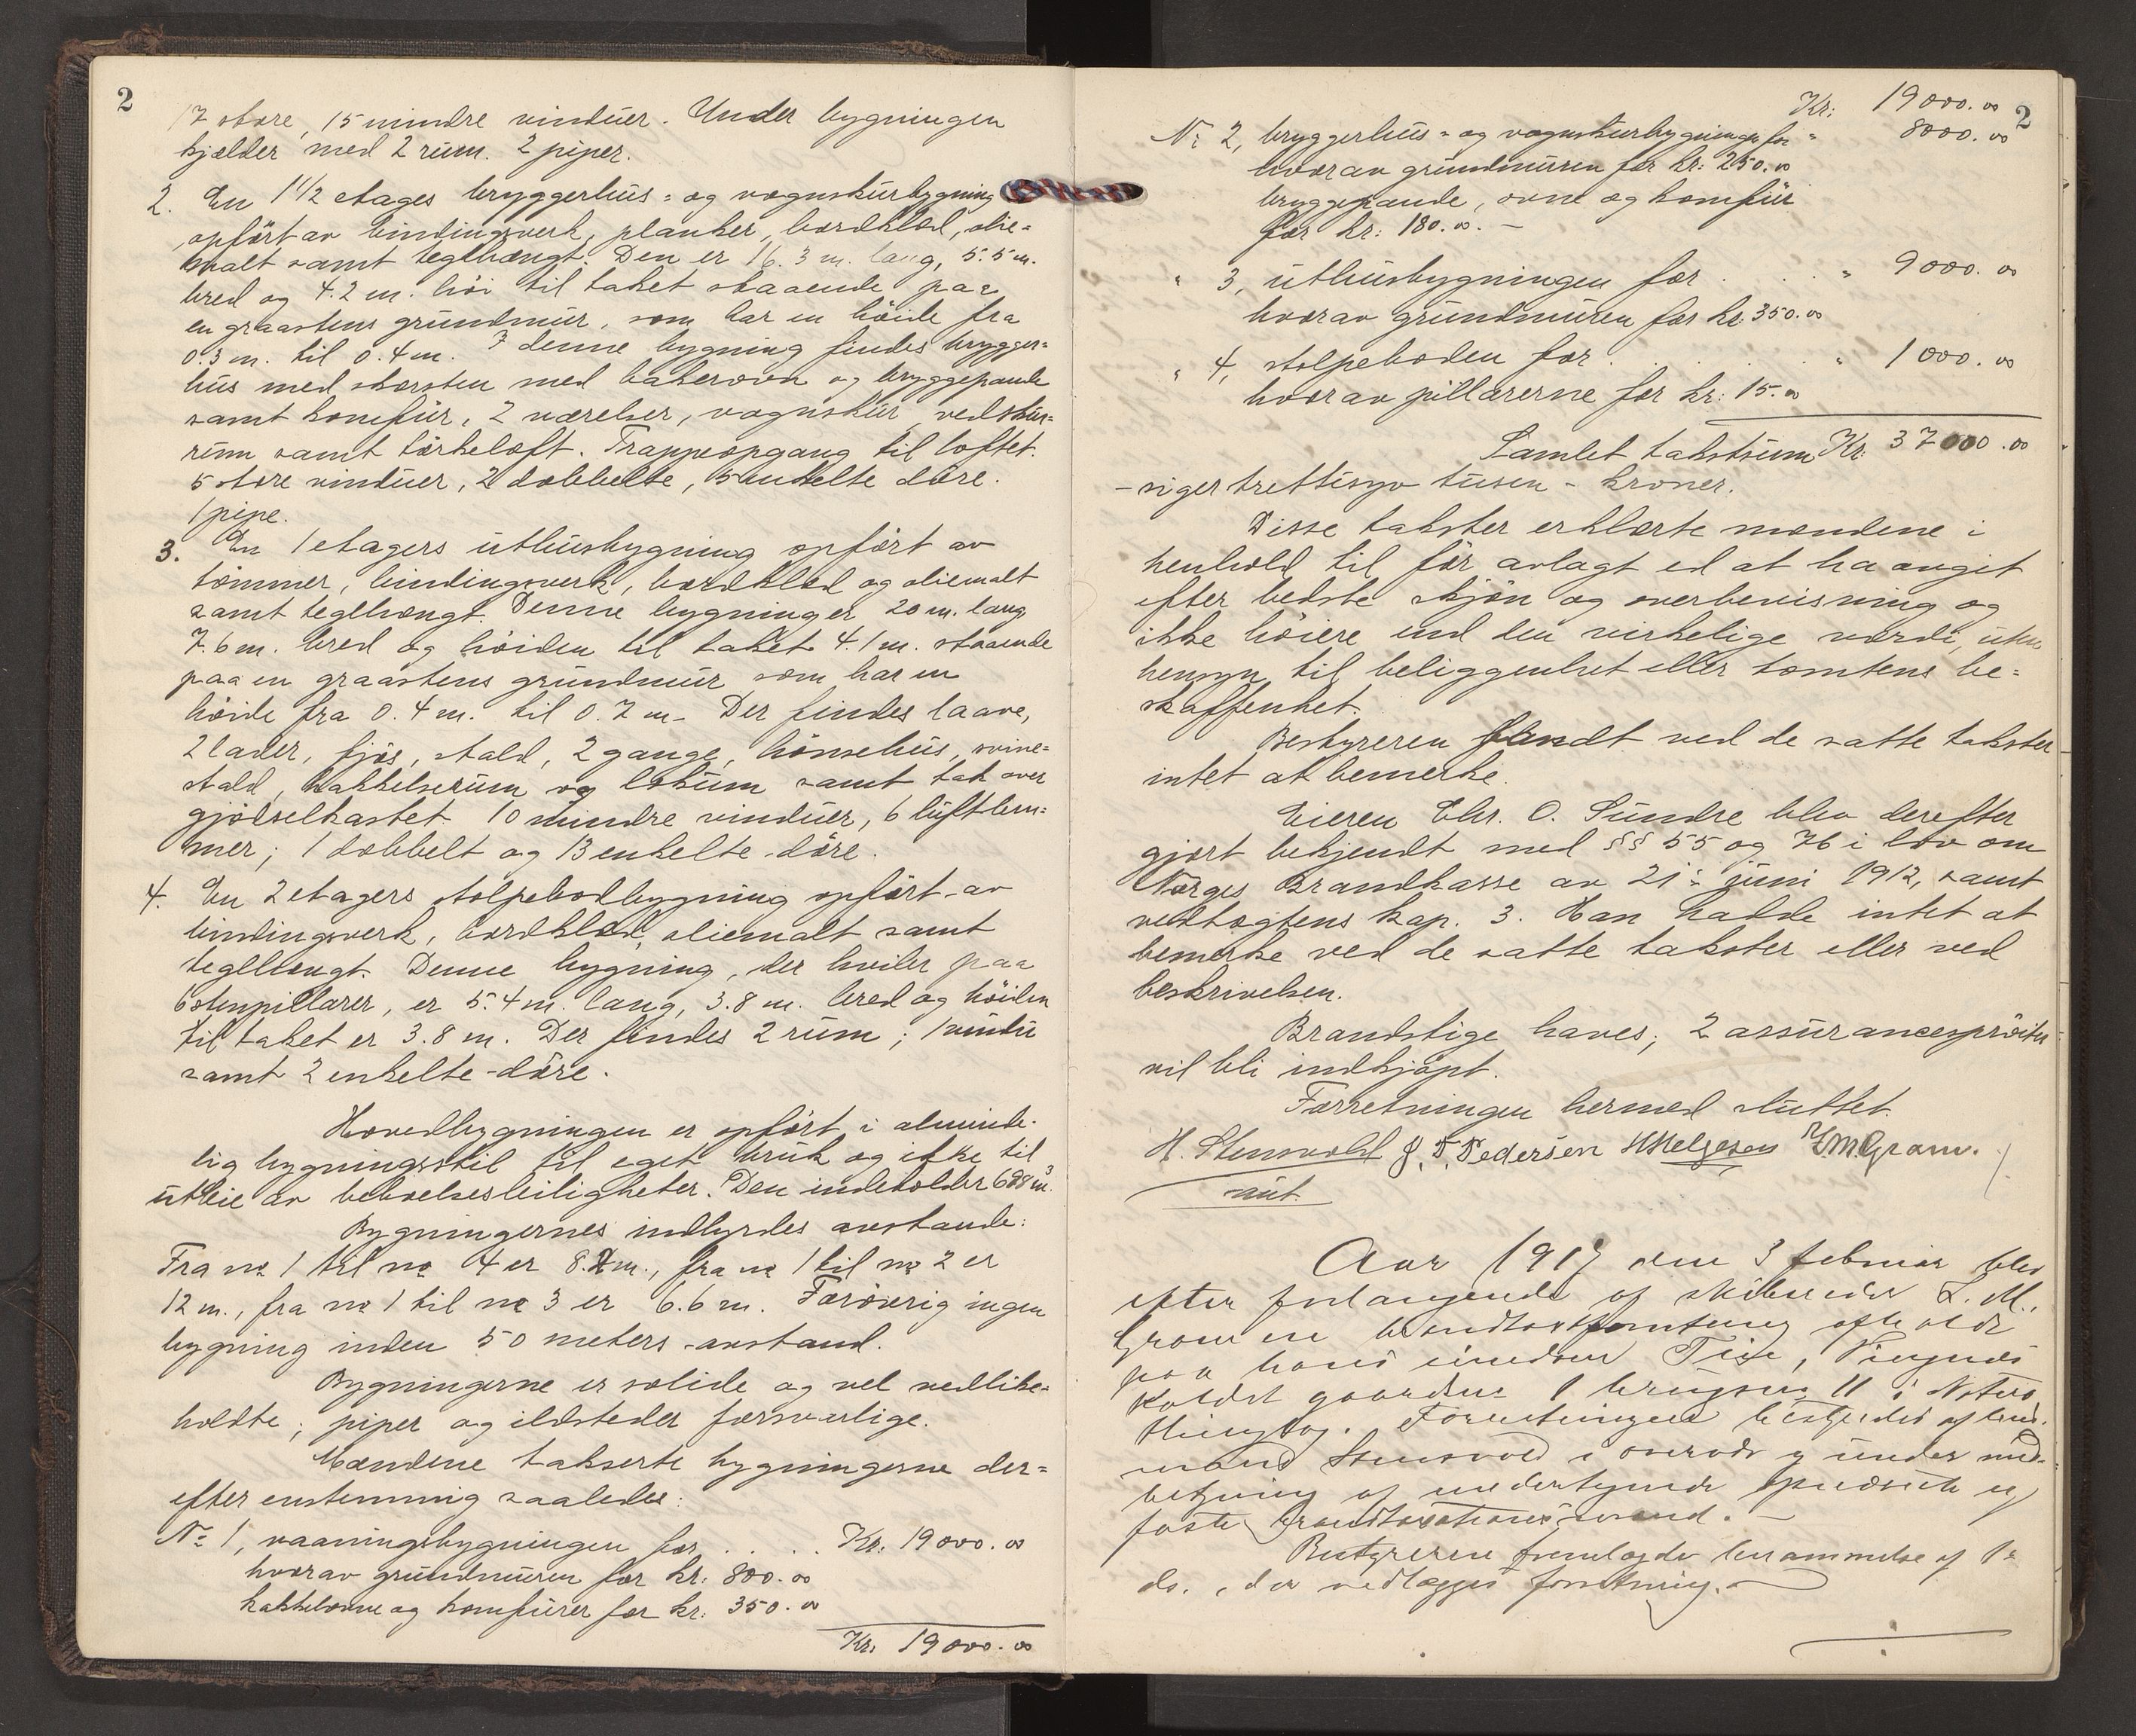 2
17 store, 15 mindre vinduer. Under bygningen
kjælder med 2 rum. 2 piper.
2. En 1 1/2 etages bryggerhus- og vognskurbygning
opført av bindingsverk, planker, bordklæd, olie-
malt samt teglhængt. Den er 16.3 m. lang, 5.5 m.
bred og 4.2 m. høi til taket staaende paa
en graastens grundmur, som har en høide fra
0.3 m. til 0.4 m. I denne bygning findes brygger-
hus med skorsten med bakerovn og bryggepande
samt komfur, 2 værelser, vognskur, vedskur-
rum samt tørkeloft. Trappeopgang til loftet.
5 store vinduer, 2 dobbelte, 5 enkelte døre.
1 pipe.
3. En 1 etagers uthusbygning opført av
tømmer, bindingsverk, bordklæd og oliemalt
samt teglhængt. Denne bygning er 20 m. lang
7.6 m. bred og høiden til taket 4.1 m. staaende
paa en graastens grundmur som har en
høide fra 0.4 m. til 0.7 m. Der findes laave,
2 lader, fjøs, stald, 2 gange, hønsehus, svine-
stald, hakkelserum og lokum samt tak over
gjødselkastet. 10 mindre vinduer, 6 luftlem-
mer; 1 dobbelt og 13 enkelte døre.
4. En 2 etagers stolpebodbygning opført av
bindingsverk, bordklæd, oliemalt samt
teglhængt. Denne bygning, der hviler paa
6 stenpillarer, er 5.4 m. lang, 3.8 m. bred og høiden
til taket er 3.8 m. Der findes 2 rum; 1 vindu
samt 2 enkelte døre.
Hovedbygningen er opført i alminde-
lig bygningsstil til eget bruk og ikke til
utleie av beboelsesleiligheter. Den indeholder 688 m³.
Bygningernes indbyrdes avstande:
Fra no 1 til no 4 er 8.2 m., fra no 1 til no 2 er
12 m., fra no 1 til no 3 er 6.6 m. Forøvrig ingen
bygning inden 50 meters avstand.
Bygningerne er solide og vel vedlike-
holdte; piper og ildsteder forsvarlige.
Mændene takserte bygningerne der-
efter enstemmig saaledes:
No 1, vaaningsbygningen for . . . . Kr. 19000.00
hvorav grundmuren for kr. 800.00
kakkelovne og komfurer for kr. 350.00
Kr. 19000.00
2
Kr. 19000.00
No 2, bryggerhus- og vognskurbygningen for " 8000.00
hvorav grundmuren for kr: 250.00
bryggepande, ovne og komfur
for kr: 180.00. -
" 3, uthusbygningen for . . . " 9000.00
hvorav grundmuren for kr. 350.00
" 4, stolpeboden for . . . . " 1000.00
hvorav pillarerne for kr: 15.00
Samlet takstsum Kr. 37000.00
- siger trettisyv tusen - kroner.
Disse takster erklærte mændene i
henhold til før avlagt ed at ha angit
efter bedste skjøn og overbevisning og
ikke høiere end den virkelige værdi, uten
hensyn til beliggenhet eller tomtens be-
skaffenhet.
Bestyreren fandt ved de satte takster
intet at bemerke.
Eieren Chr. O. Sundre blev derefter
gjort bekjendt med §§ 55 og 76 i lov om
Norges Brandkasse av 21: juni 1912, samt
vedtægtens kap. 3. Han hadde intet at
bemerke ved de satte takster eller ved
beskrivelsen.
Brandstige haves; 2 assurancesprøiter
vil bli indkjøpt.
Forretningen hermed sluttet.
H. Stensvold J. T. Pedersen H Helgesen I.M. Gram.
aut.
Aar 1917 den 3 februar blev
efter forlangende af skibsreder I. M.
Gram en brandtaxtforretning afholdt
paa hans eiendom
kaldet gaardsnr 1 bruksnr 11 i Nøterø
thinglag. Forretningen bestyredes af lens-
mand Stensvold i overvær og under med-
virkning af undertegnede opnævnte og
faste brandtaxationsmænd. -
Bestyreren fremlagde berammelse af 1ste
ds., der vedlægges forretning.